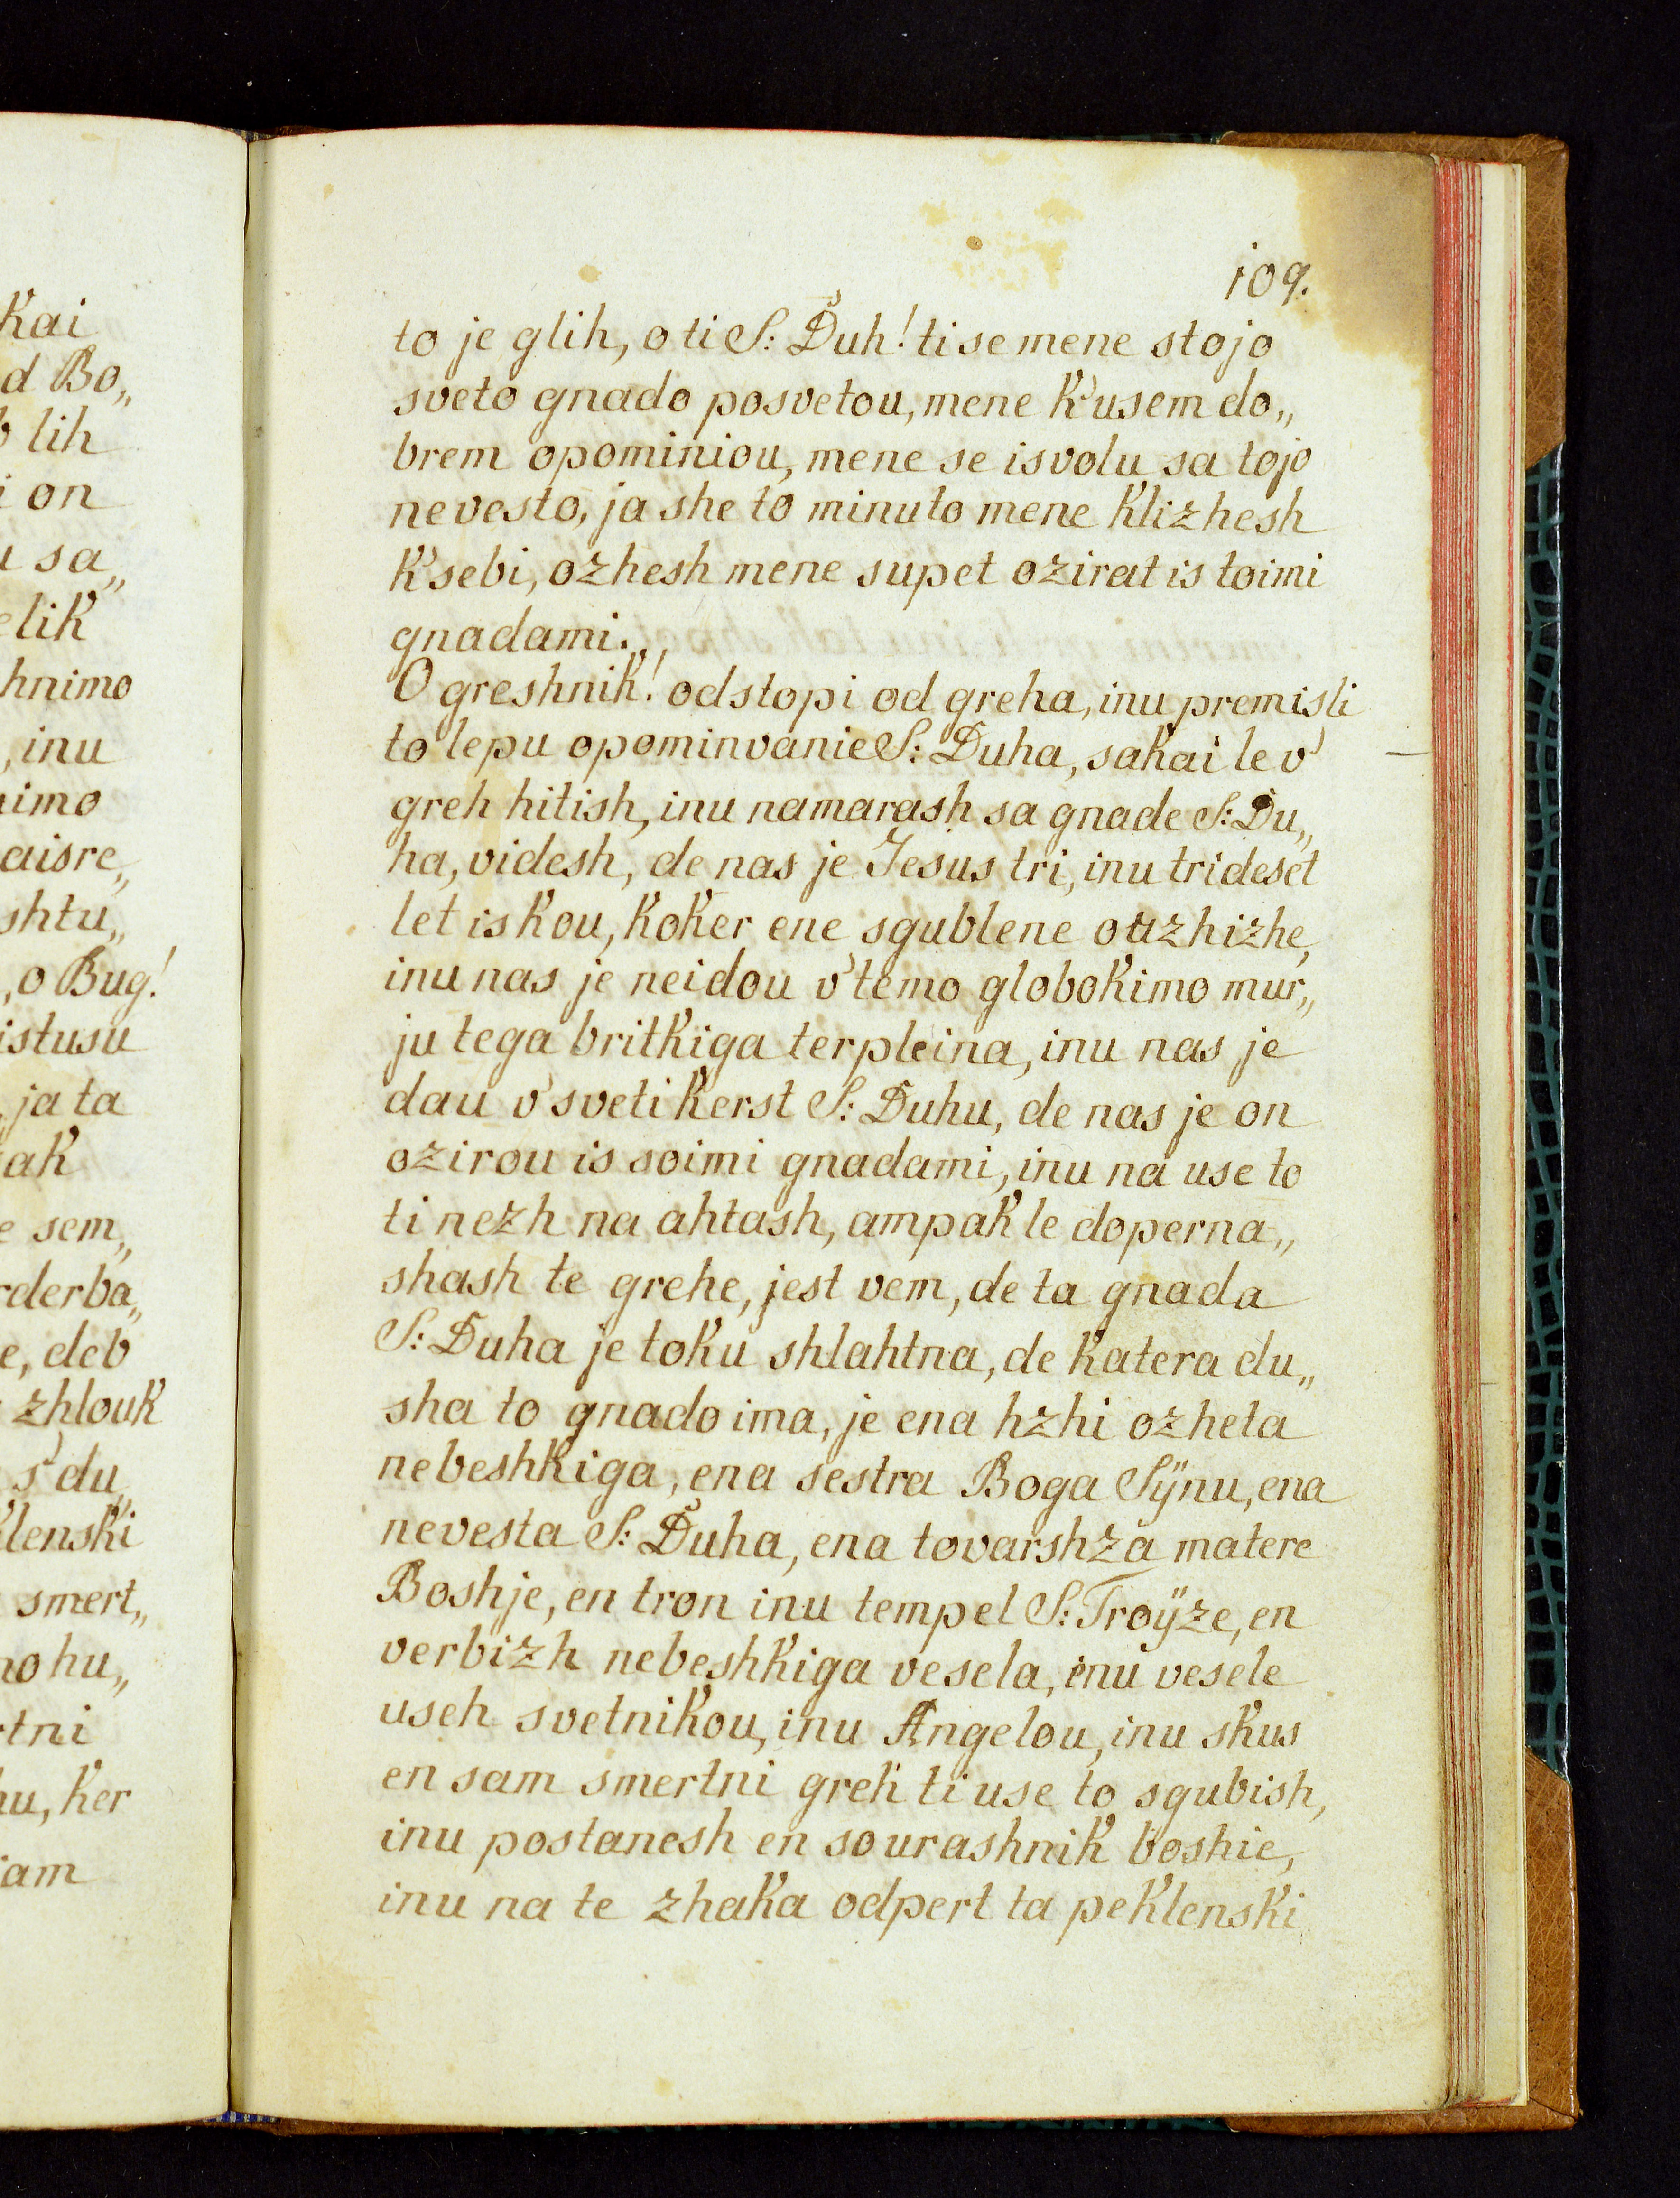 kai
d Bo„
lih
i on
u sa„
elik
hnimo
, inu
nimo
aisre„
shtu„
, o Bug!
istusu
, ja ta
ak
e sem„
rderba„
e, deb
zhlouk
s' du„
klenski
smert„
no hu„
rtni
nu, ker
iam
109.
to je glih, o ti S: Duh! ti se mene stojo
sveto gnado posvetou, mene k'usem do„
brem opominiou, mene se isvolu sa tojo
nevesto, ja she to minuto mene klizhesh
k'sebi, ozhesh mene supet ozirat is toimi
gnadami.„
O greshnik! odstopi od greha, inu premisli
to lepu opominvanie S: Duha, sakai le v'
greh hitish, inu namarash sa gnade S: Du„
ha, videsh, de nas je Jesus tri, inu trideset
let iskou, koker ene sgublene ouzhizhe,
inu nas je neidou v'temo globokimo mur„
ju tega britkiga terpleina, inu nas je
dau v'sveti kerst S: Duhu, de nas je on
ozirou is soimi gnadami, inu na use to
ti nezh na ahtash, ampak le doperna„
shash te grehe, jest vem, de ta gnada
S: Duha je toku shlahtna, de katera du„
sha to gnado ima, je ena hzhi ozheta
nebeshkiga, ena sestra Boga Sÿnu, ena
nevesta S: Duha, ena tovarshza matere
Boshje, en tron inu tempel S: Troÿze, en
verbizh nebeshkiga vesela, inu vesele
useh svetnikou, inu Angelou, inu skus
en sam smertni greh ti use to sgubish,
inu postanesh en sourashnik boshie,
inu na te zhaka odpert ta peklenski